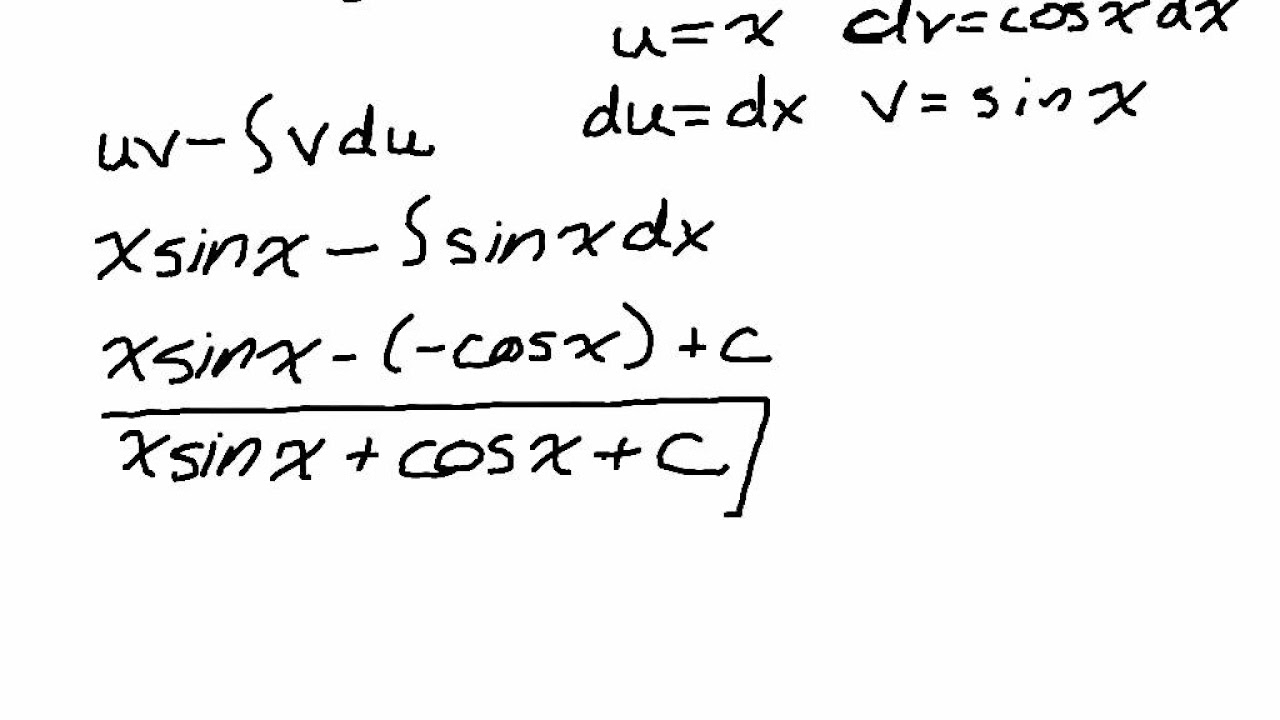 u=x dv=cosxdx
du=dx v=sinx
uv-∫vdu
xsinx-∫sinxdx
xsinx-(-cosx)+c
xsinx+cosx+c